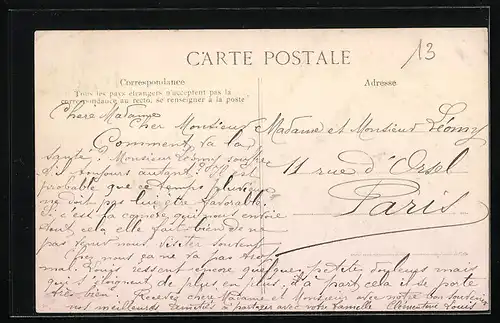 CARTE POSTALE
13
Correspondance
Tous les pays étrangers n'acceptent pas la
correspondance au recto, se renseigner à la poste
Adresse
Chère Madame
Cher Monsieur
Comment va la
santé, Monsieur Léony souffre
il toujours autant? Il est
probable que ce temps pluvieux
ne doit pas lui être favorable
si c'est sa qui nous envoie
tout cela elle fait bien de ne
pas venir nous visiter souvent
Chez nous ça ne va pas trop
mal. Louis ressent encore quelques petites douleurs mais
qui s'éloignent de plus en plus, à part cela il se porte
très bien. Recevez chère Madame et Monsieur avec notre bon souvenir
nos meilleures amitiés à partager avec votre famille Clémentine Louis
Madame et Monsieur Léony
11 rue d'Orsel
Paris